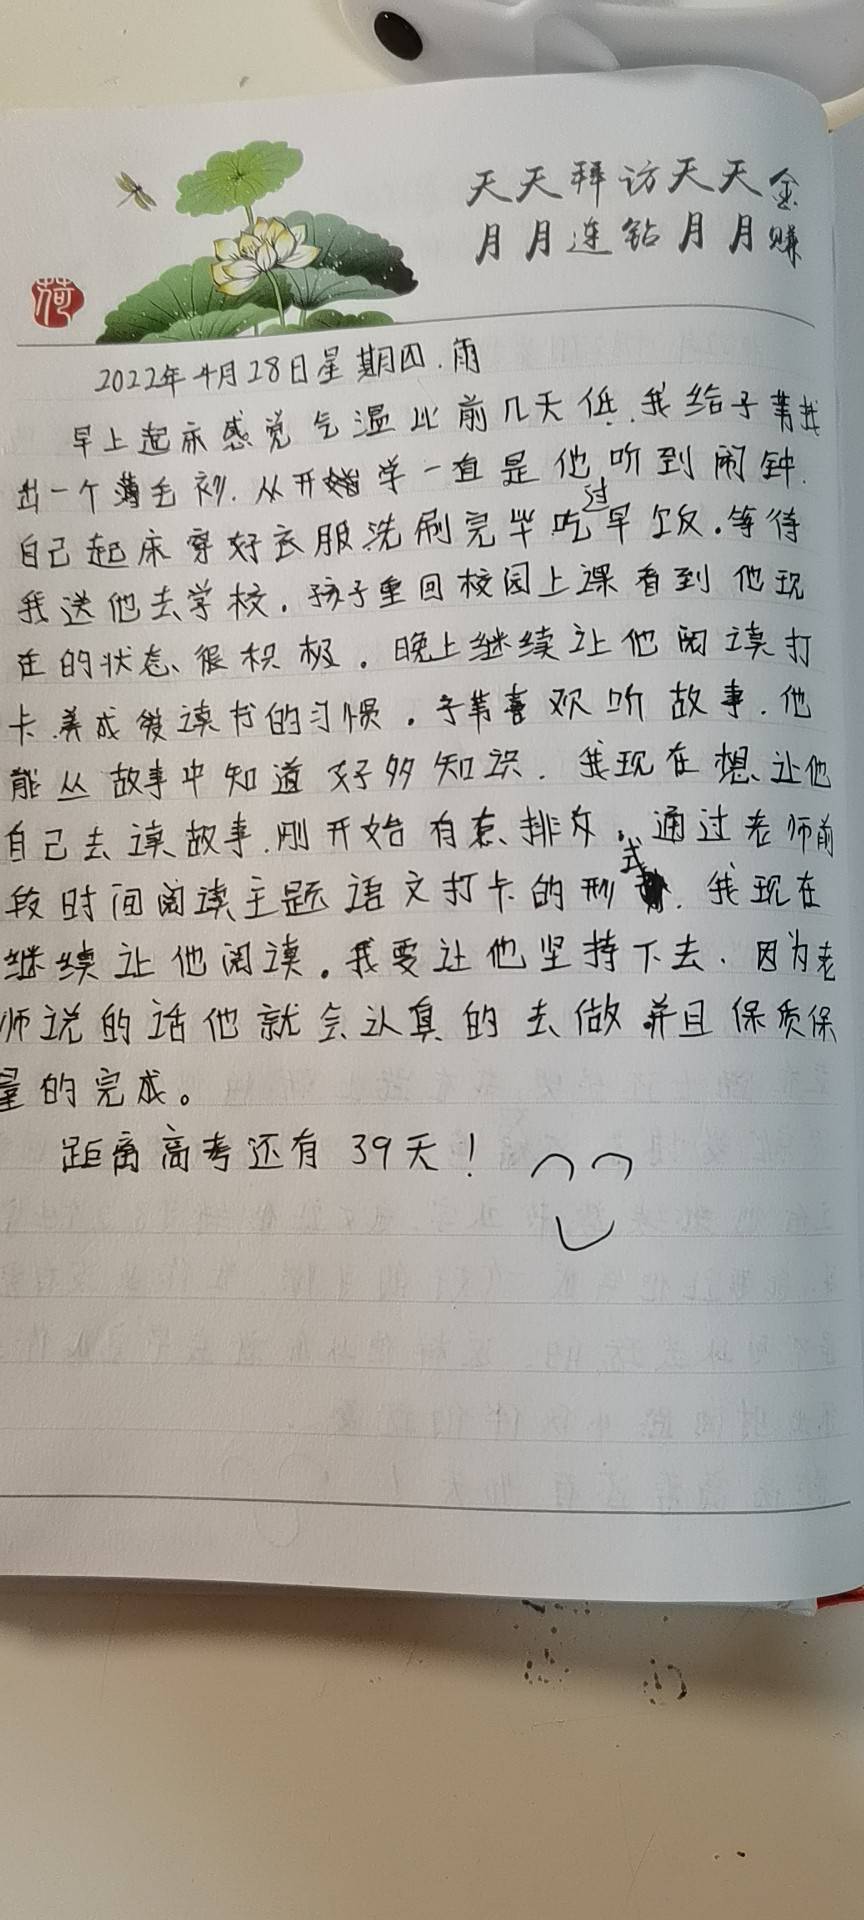 天天拜访天天金
月月连钻月月赚
荷
2022年4月28日星期四.雨
早上起床感觉气温比前几天低.我给子菁找
出一个薄毛衫.从开学一直是他听到闹钟.
自己起床穿好衣服.洗刷完毕吃过早饭.等待
我送他去学校.孩子重回校园上课看到他现
在的状态、很积极.晚上继续让他阅读打
卡.养成爱读书的习惯.子菁喜欢听故事.他
能从故事中知道好多知识.我现在想、让他
自己去读故事.刚开始有意、排斥。通过老师前
段时间阅读主题语文打卡的形式.我现在
继续让他阅读。我要让他坚持下去、因为老
师说的话他就会认真的去做并且保质保
量的完成。
距离高考还有39天！